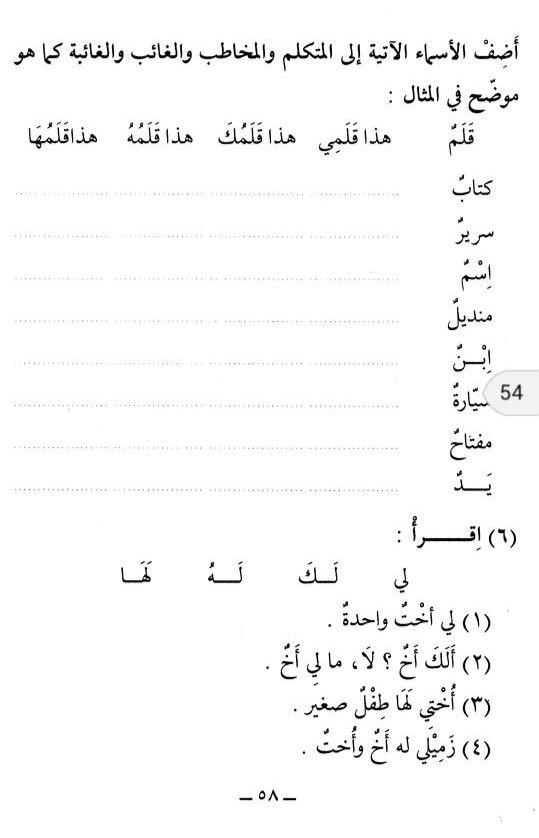 أَضِفْ الأسماء الآتية إلى المتكلم والمخاطب والغائب والغائبة كما هو
موضّح في المثال :
قَلَمٌ هذا قَلَمِي هذا قَلَمُكَ هذا قَلَمُهُ هذا قَلَمُهَا
كتابٌ
سريرٌ
اِسْمٌ
منديلٌ
اِبْــنٌ
سيّارةٌ
54
مفتاحٌ
يَــدٌ
(٦) اِقــــرأْ :
لي لَــكَ لَــهُ لَهَـا
(١) لي أخْتٌ واحدةٌ .
(٢) أَلَكَ أَخٌ ؟ لَا ، ما لِي أَخٌ .
(٣) أُخْتِي لَهَا طِفْلٌ صغير .
(٤) زَمِيْلي له أَخٌ وأُختٌ .
– ٥٨ –